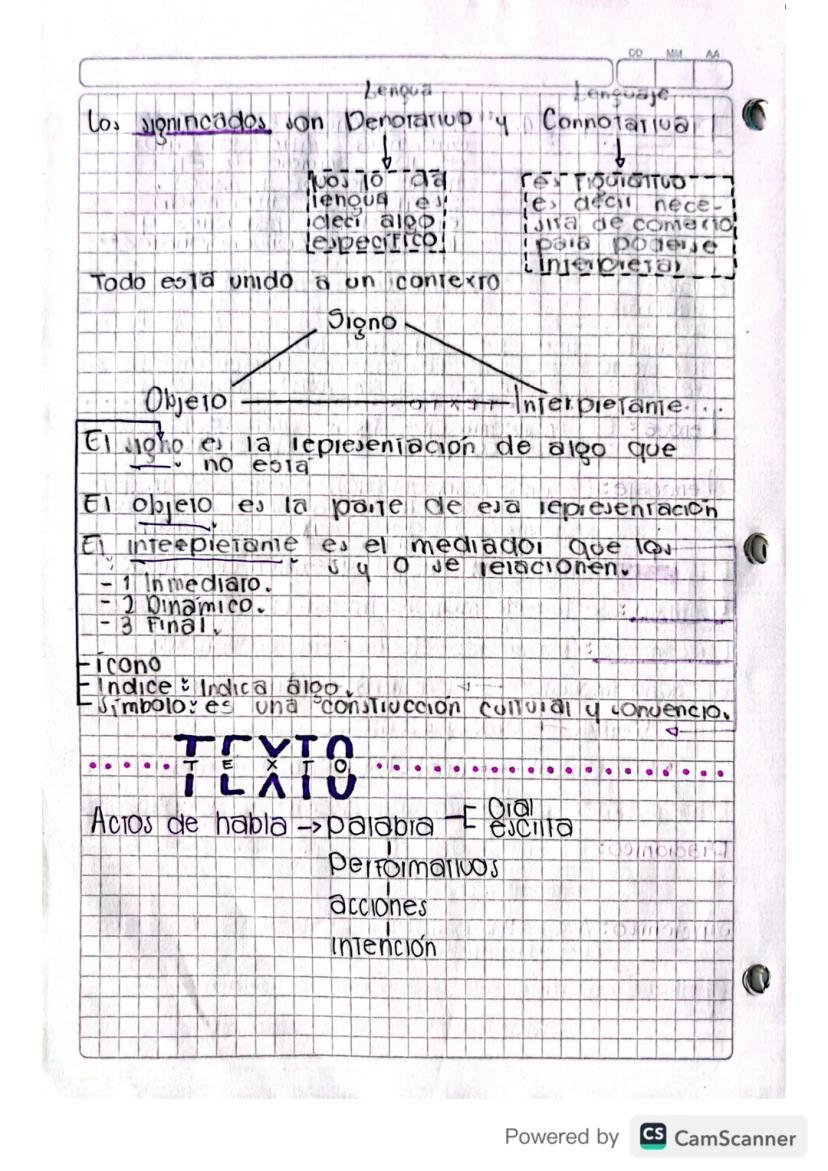 DD MM AA
Lengua Lenguaje
Los significados son Denotativo y Connotativa
nos lo da
lengua es
deci algo
especifico
es figurativo
es decir nece-
sita de contexto
para poderse
interpretar
Todo está unido a un contexto
Signo
Objeto Interpretante
El signo es la representación de algo que
no está
El objeto es la parte de esa representación
El inteepretante es el mediador que los
s y O se relacionen.
- 1 Inmediato.
- 2 Dinámico.
- 3 Final.
- ícono
- Índice: Indica algo.
- Símbolo: es una construcción cultural y convencio.
TEXTO
T E X T O
Actos de habla -> palabra Oral
escrita
performativos
acciones
intención
Powered by CS CamScanner